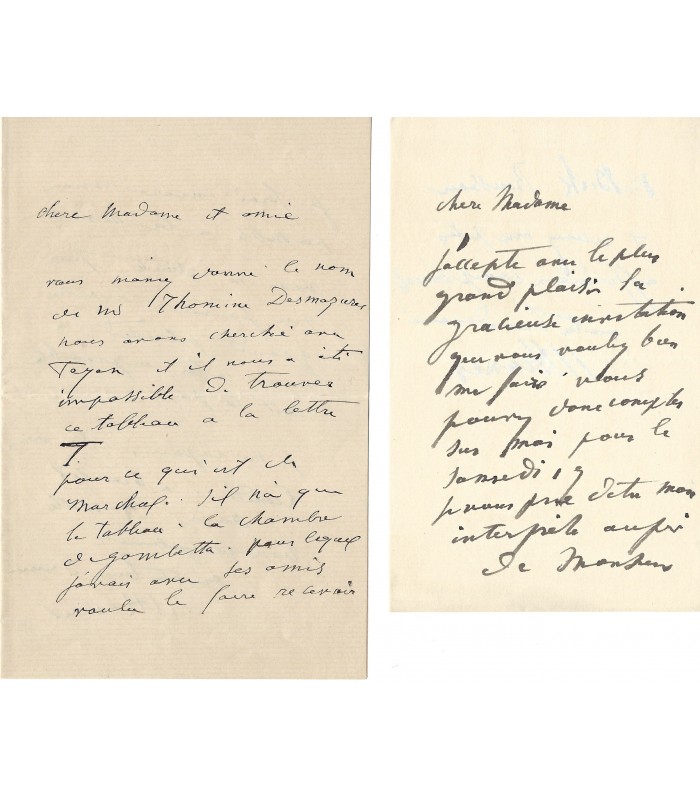 chere Madame et amie
vous m'aviez donné le nom
de Mr Thomine Desmazures
nous avons cherché avec
Fayon et il nous a été
impossible de trouver
ce tableau a la lettre
T
pour ce qui est de
Marchal. s'il n'a que
le tableau. la chambre
de gambetta. pour lequel
j'avais avec ses amis
voulu le faire recevoir
chere Madame
j'accepte avec le plus
grand plaisir la
gracieuse invitation
que vous voulez bien
me faire vous
pouvez donc compter
sur moi pour le
Samedi 19
je vous prie d'etre mon
interpréte auprès
de Monsieur